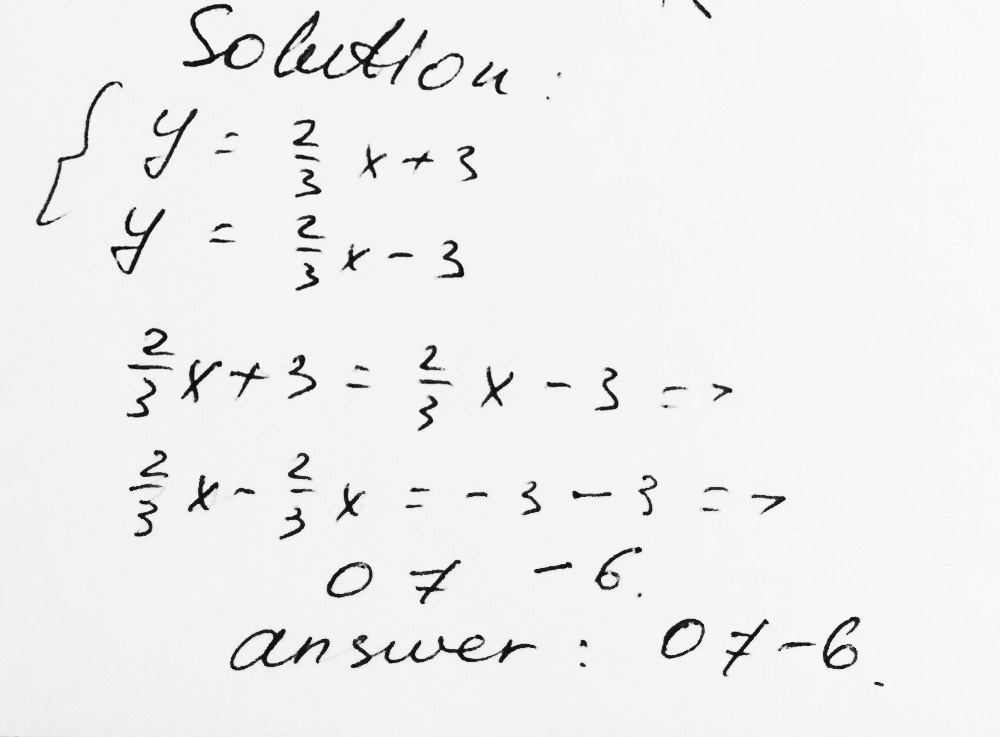 Solution:
y = 2/3 x + 3
y = 2/3 x - 3
2/3 x + 3 = 2/3 x - 3 =>
2/3 x - 2/3 x = - 3 - 3 =>
0 ≠ - 6.
answer: 0 ≠ - 6.